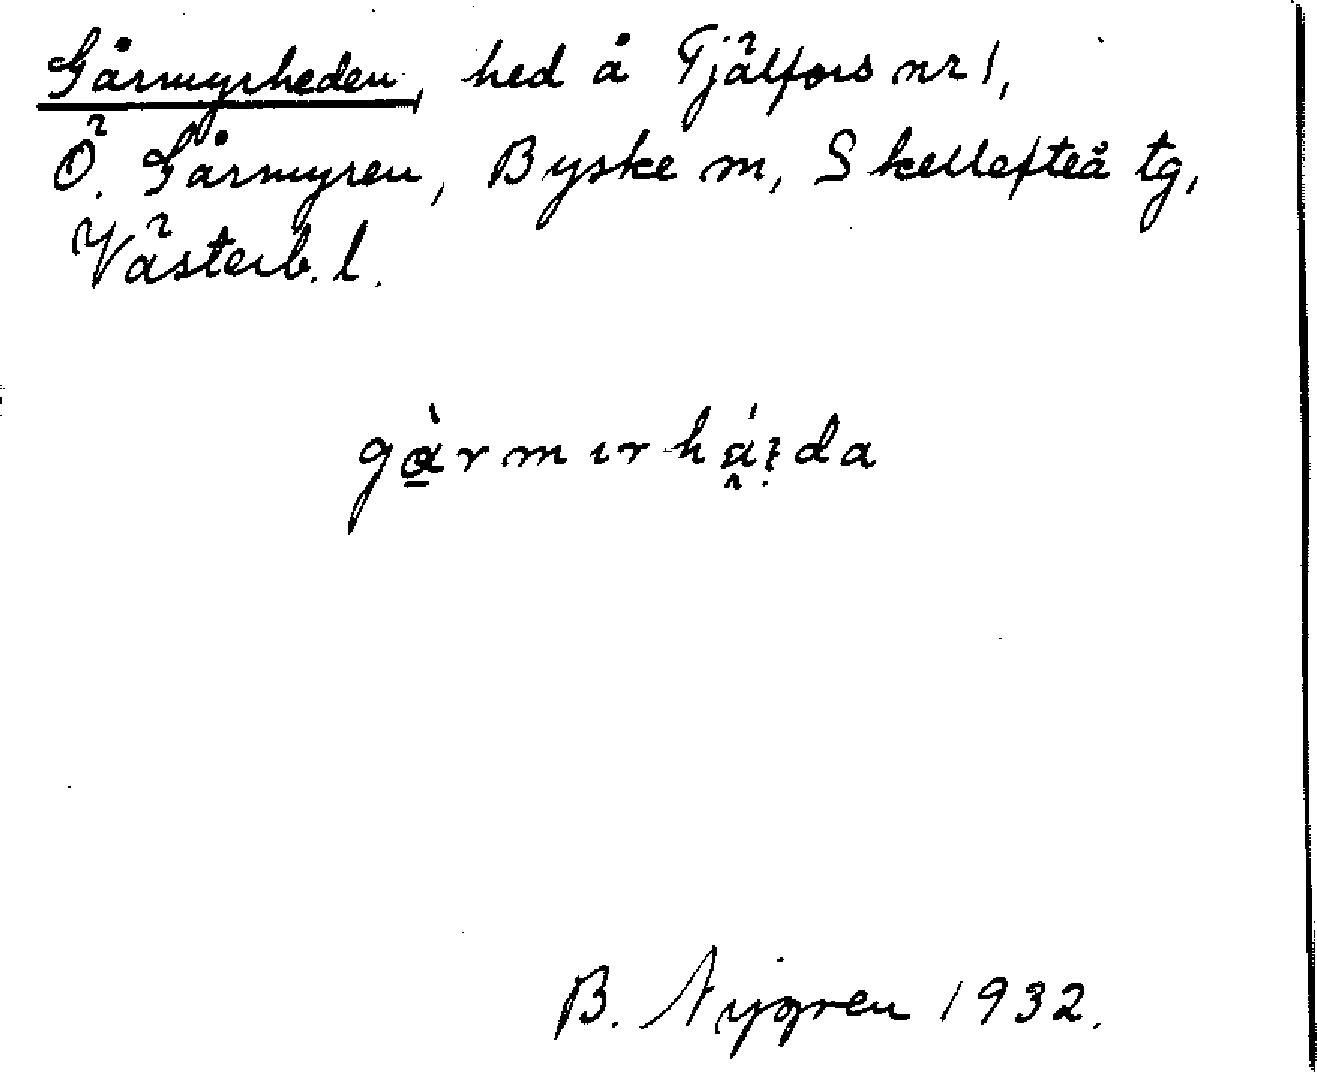 Gårmyrheden, hed å Tjälfors nr 1,
Ö. Gårmyren, Byske sn, Skellefteå tg,
Västerb. l.
gàrmırháı̣da
B. Nygren 1932.